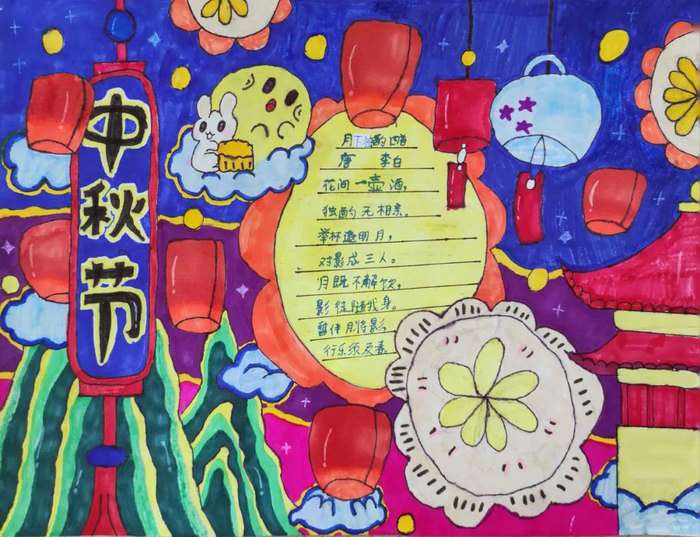 中秋节
月下独酌四首
唐 李白
花间一壶酒，
独酌无相亲。
举杯邀明月，
对影成三人。
月既不解饮，
影徒随我身。
暂伴月将影，
行乐须及春